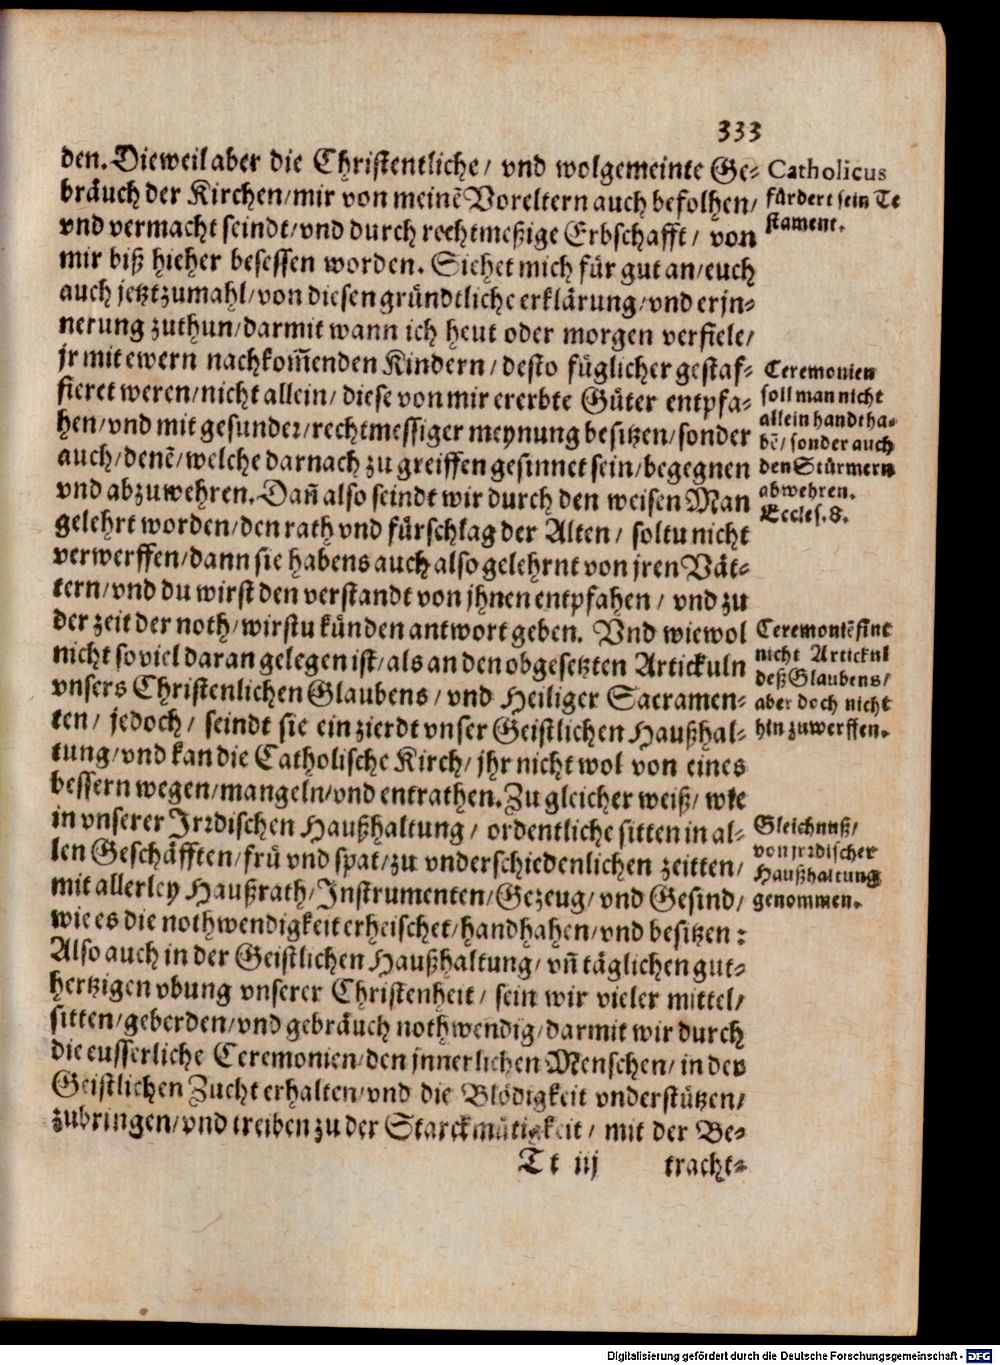 333
den. Dieweil aber die Christentliche/ vnd wolgemeinte Ge-
bräuch der Kirchen/mir von meinē Voreltern auch befolhen/
vnd vermacht seindt/vnd durch rechtmeßige Erbschafft/ von
mir biß hieher besessen worden. Sihet mich für gut an/euch
auch jetzt zumahl/von diesen gründtliche erklärung/vnd erjn-
nerung zuthun/darmit wann ich heut oder morgen verfiele/
jr mit ewern nachkom̄enden Kindern/desto füglicher gestaf-
fieret weren/nicht allein/ diese von mir ererbte Güter entpfa-
hen/vnd mit gesunder/rechtmessiger meynung besitzen/sonder
auch/denē/welche darnach zu greiffen gesinnet sein/begegnen
vnd abzuwehren. Dan̄ also seindt wir durch den weisen Man
gelehrt worden/den rath vnd fürschlag der Alten/ soltu nicht
verwerffen/dann sie habens auch also gelehrnt von jren Vät-
tern/vnd du wirst den verstandt von jhnen entpfahen/ vnd zu
der zeit der noth/wirstu künden antwort geben. Vnd wiewol
nicht so viel daran gelegen ist/als an den obgesetzten Artickuln
vnsers Christenlichen Glaubens/ vnd Heiliger Sacramen-
ten/ jedoch/ seindt sie ein zierdt vnser Geistlichen Haußhal-
tung/vnd kan die Catholische Kirch/ jhr nicht wol von eines
bessern wegen/mangeln/vnd entrathen. Zu gleicher weiß/ wie
in vnserer Irrdischen Haußhaltung/ ordentliche sitten in al-
len Geschäfften/frü vnd spat/zu vnderschiedenlichen zeitten/
mit allerley Haußrath/Instrumenten/Gezeug/vnd Gesind/
wie es die nothwendigkeit erheischet/handhahen/vnd besitzen:
Also auch in der Geistlichen Haußhaltung/ vn̄ täglichen gut-
hertzigen vbung vnserer Christenheit/ sein wir vieler mittel/
sitten/geberden/vnd gebräuch nothwendig/darmit wir durch
die eusserliche Ceremonien/den jnnerlichen Menschen/ in der
Geistlichen Zucht erhalten/vnd die Blödigkeit vnderstützen/
zubringen/vnd treiben zu der Starckmütigkeit/ mit der Be-
Tt iij
tracht-
Catholicus
fürdert sein Te
stament.
Ceremonien
soll man nicht
allein handtha-
bē/ sonder auch
den Stürmern
abwehren.
Eccles. 8.
Ceremoniē sint
nicht Artickul
deß Glaubens/
aber doch nicht
hin zuwerffen.
Gleichnuß/
von jrrdischer
Haußhaltung
genommen.
Digitalisierung gefördert durch die Deutsche Forschungsgemeinschaft - DFG